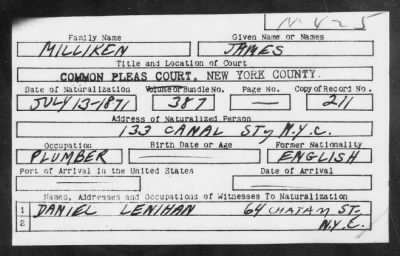 N 425
Family Name Given Name or Names
MILLIKEN JAMES
Title and Location of Court
COMMON PLEAS COURT, NEW YORK COUNTY.
Date of Naturalization Volume or Bundle No. Page No. Copy of Record No.
JULY 13-1871 387 — 211
Address of Naturalized Person
133 CANAL ST, N.Y.C.
Occupation Birth Date or Age Former Nationality
PLUMBER ENGLISH
Port of Arrival in the United States Date of Arrival
Names, Addresses and Occupations of Witnesses To Naturalization
1 DANIEL LENIHAN 64 CHATAM ST.
2 N.Y.C.